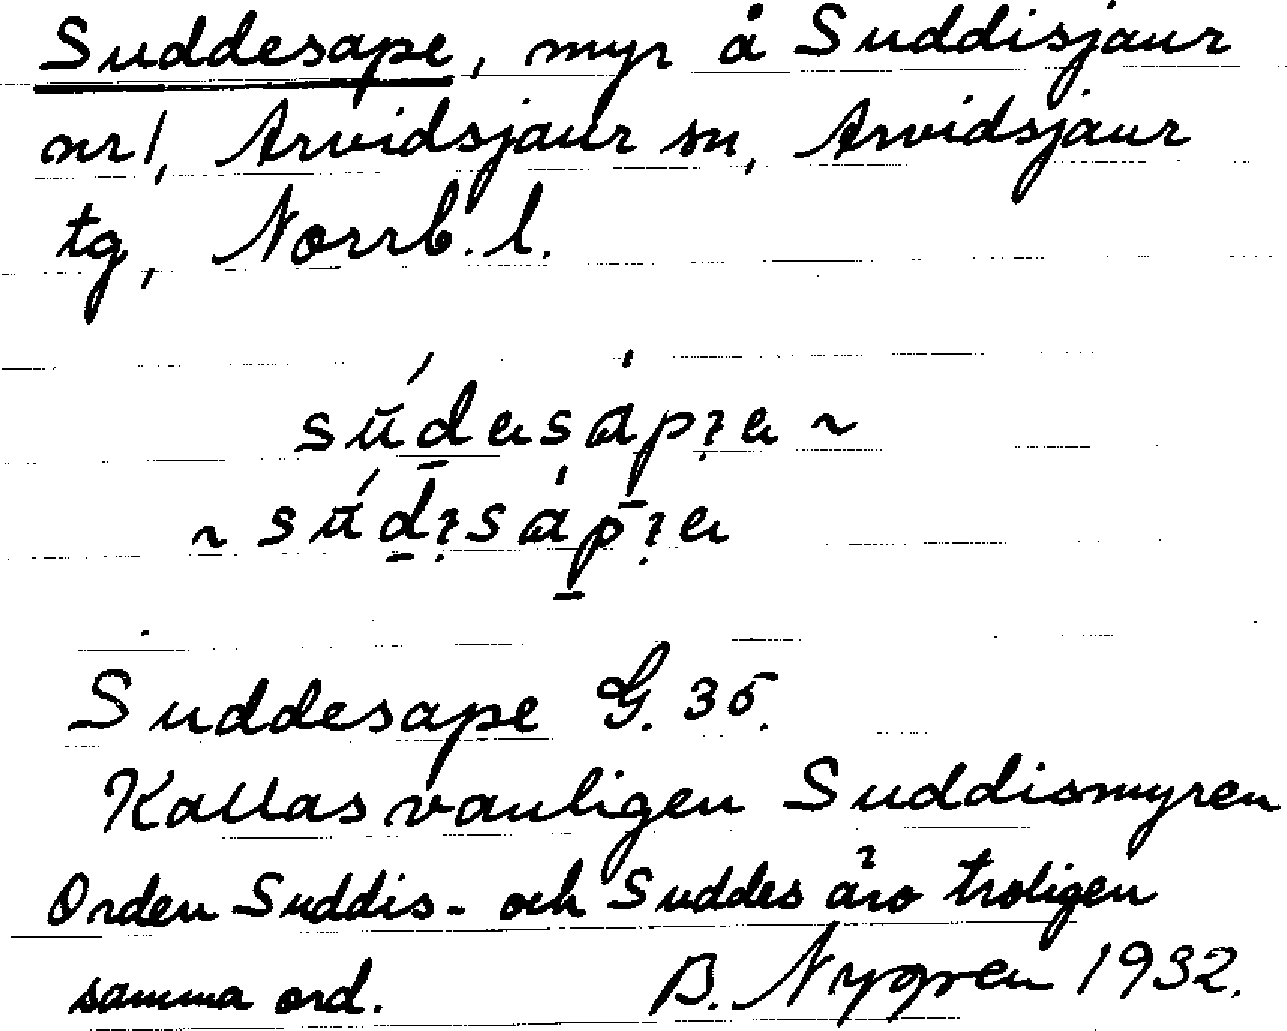 Suddesape, myr å Suddisjaur
nr 1, Arvidsjaur sn, Arvidsjaur
tg, Norrb. l.
Suddesape G. 35.
Kallas vanligen Suddismyren
Orden Suddis- och Suddes äro troligen
samma ord. B. Nygren 1932.